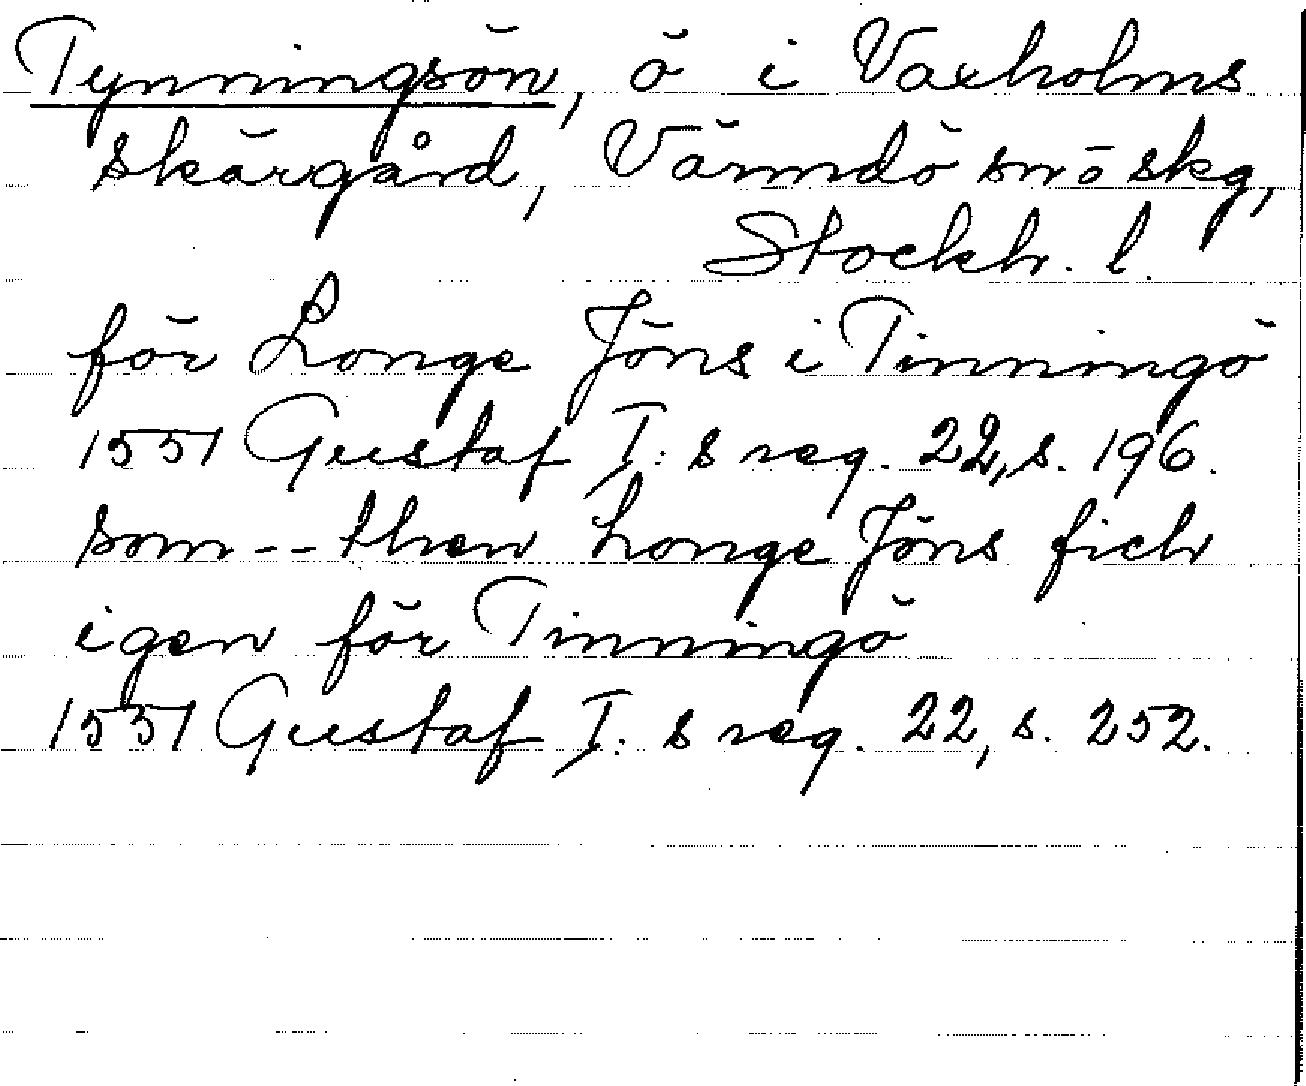 Tynningsön, ö i Vaxholms
skärgård, Värmdö sn ö skg,
Stockh. l.
för Longe Jöns i Tinningö
1551 Gustaf I:s reg. 22, s. 196.
som -- then Longe Jöns fich
igen för Tinningö
1551 Gustaf I:s reg. 22, s. 252.